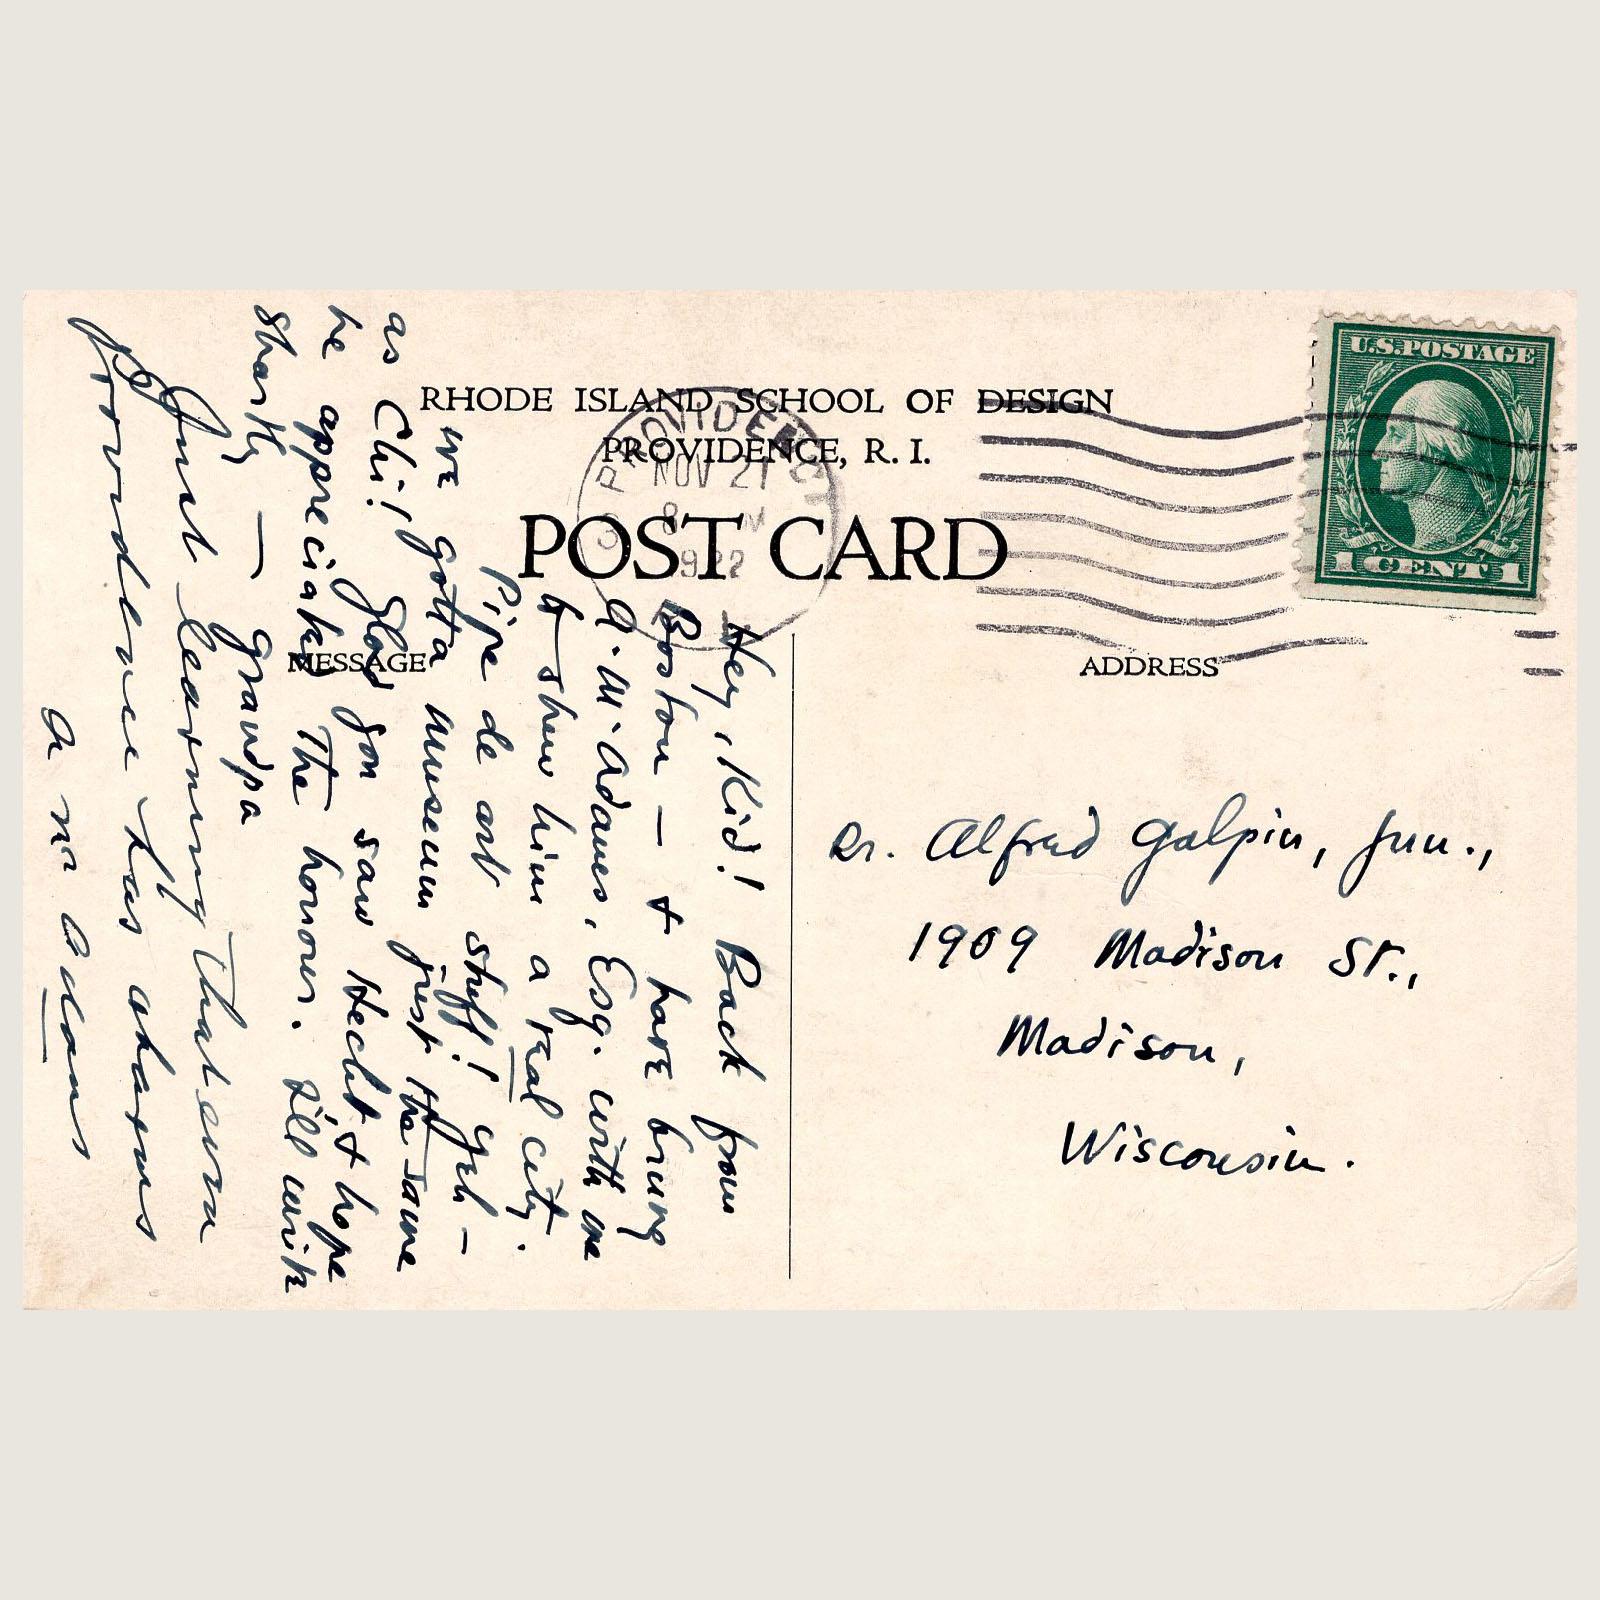 RHODE ISLAND SCHOOL OF DESIGN
PROVIDENCE, R. I.
POST CARD
MESSAGE
ADDRESS
U.S. POSTAGE
1 CENT 1
PROVIDENCE
NOV 21
8
1922
Hey, Kid! Back from
Boston — & have brung
A. M. Adams, Esq. with me
to shew him a real city.
Pipe de art stuff! Yeh —
we gotta museum jest the same
as Chi! Glad you saw Hecht & hope
he appreciated the honour. I'll write
shortly — Grandpa
Just learning that even
Providence has charms
A Mc Adams
Alfred Galpin, Jun.,
1909 Madison St.,
Madison,
Wisconsin.